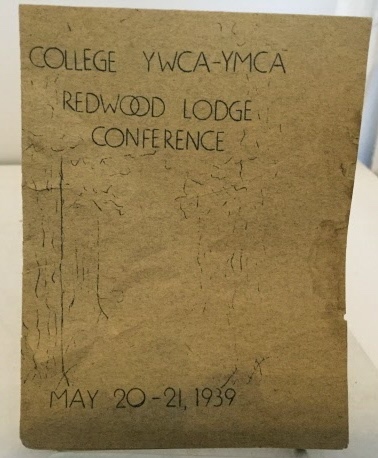 COLLEGE YWCA-YMCA
REDWOOD LODGE
CONFERENCE
MAY 20-21, 1939